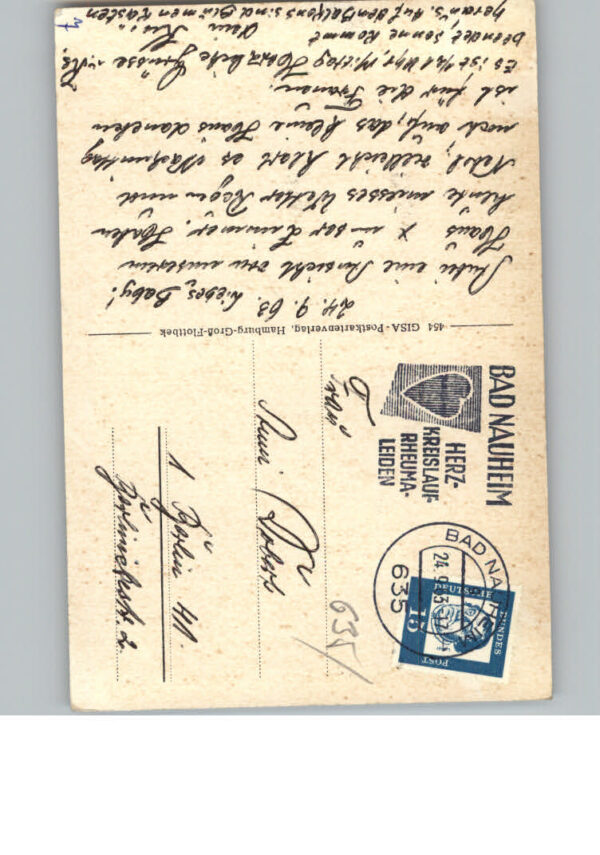 24.9.63.
Liebes Baby!
Anbei eine Ansicht von unserem
Haus X unser Zimmer. Haben
heute mieses Wetter Regen und
Nebel, vielleicht klart es Nachmittag
noch auf, das kleine Haus daneben
ist für die Frauen.
Es ist Uhr, Mittag Herzliche Grüsse
beendet, Sonne kommt
heraus. Auf den Balkons sind Blumenkästen
454 GISA-Postkartenverlag, Hamburg-Groß-Flottbek
BAD NAUHEIM
HERZ-
KREISLAUF-
RHEUMA-
LEIDEN
BAD NAUHEIM
24.9.63.
635
DEUTSCHE
BUNDES
POST
15
Frau
1 Berlin 41
2
635/